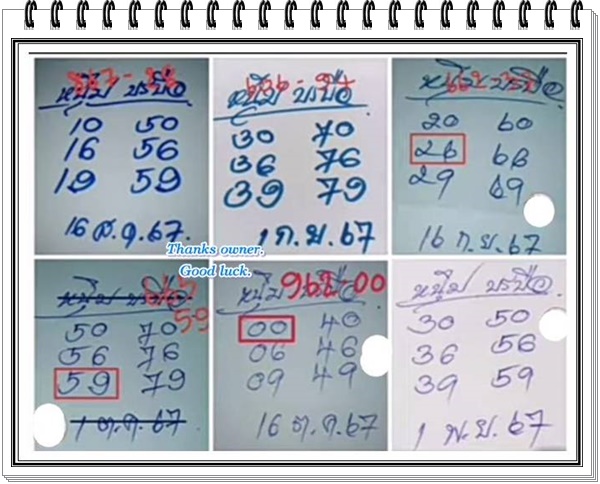 หนุ่ม บรบือ
10 50
16 56
19 59
16 ส.ค. 67.
หนุ่ม บรบือ
30 70
36 76
39 79
1 ก.ย. 67
หนุ่ม บรบือ
20 60
26 66
29 69
16 ก.ย. 67
Thanks owner.
Good luck.
หนุ่ม บรบือ
59
50 70
56 76
59 79
1 ต.ค. 67
หนุ่ม บรบือ
00 40
06 46
09 49
16 ต.ค. 67
หนุ่ม บรบือ.
30 50
36 56
39 59
1 พ.ย. 67